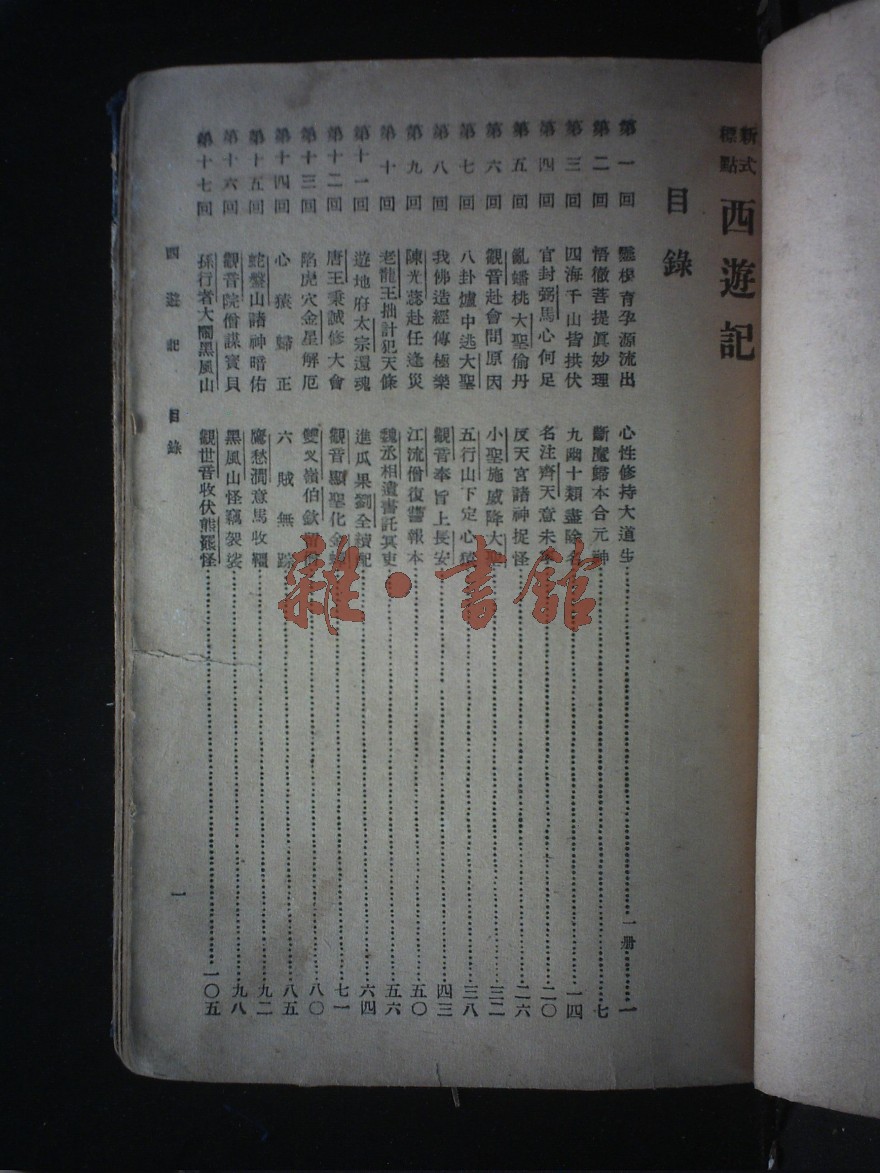 新式標點 西遊記
目錄
第一回 靈根育孕源流出 心性修持大道生 一册 一
第二回 悟徹菩提眞妙理 斷魔歸本合元神 七
第三回 四海千山皆拱伏 九幽十類盡除名 一四
第四回 官封弼馬心何足 名注齊天意未 二〇
第五回 亂蟠桃大聖偷丹 反天宮諸神捉怪 二六
第六回 觀音赴會問原因 小聖施威降大 三二
第七回 八卦爐中逃大聖 五行山下定心 三八
第八回 我佛造經傳極樂 觀音奉旨上長安 四三
第九回 陳光蕊赴任逢災 江流僧復讐報本 五〇
第十回 老龍王拙計犯天條 魏丞相遺書託冥吏 五六
第十一回 遊地府太宗還魂 進瓜果劉全續配 六四
第十二回 唐王秉誠修大會 觀音顯聖化金 七一
第十三回 陷虎穴金星解厄 雙叉嶺伯欽 八〇
第十四回 心猿歸正 六賊無踪 八五
第十五回 蛇盤山諸神暗佑 鷹愁澗意馬收韁 九二
第十六回 觀音院僧謀寶貝 黑風山怪竊袈裟 九八
第十七回 孫行者大鬧黑風山 觀世音收伏熊羆怪 一〇五
西遊記 目錄 一
雜·書館